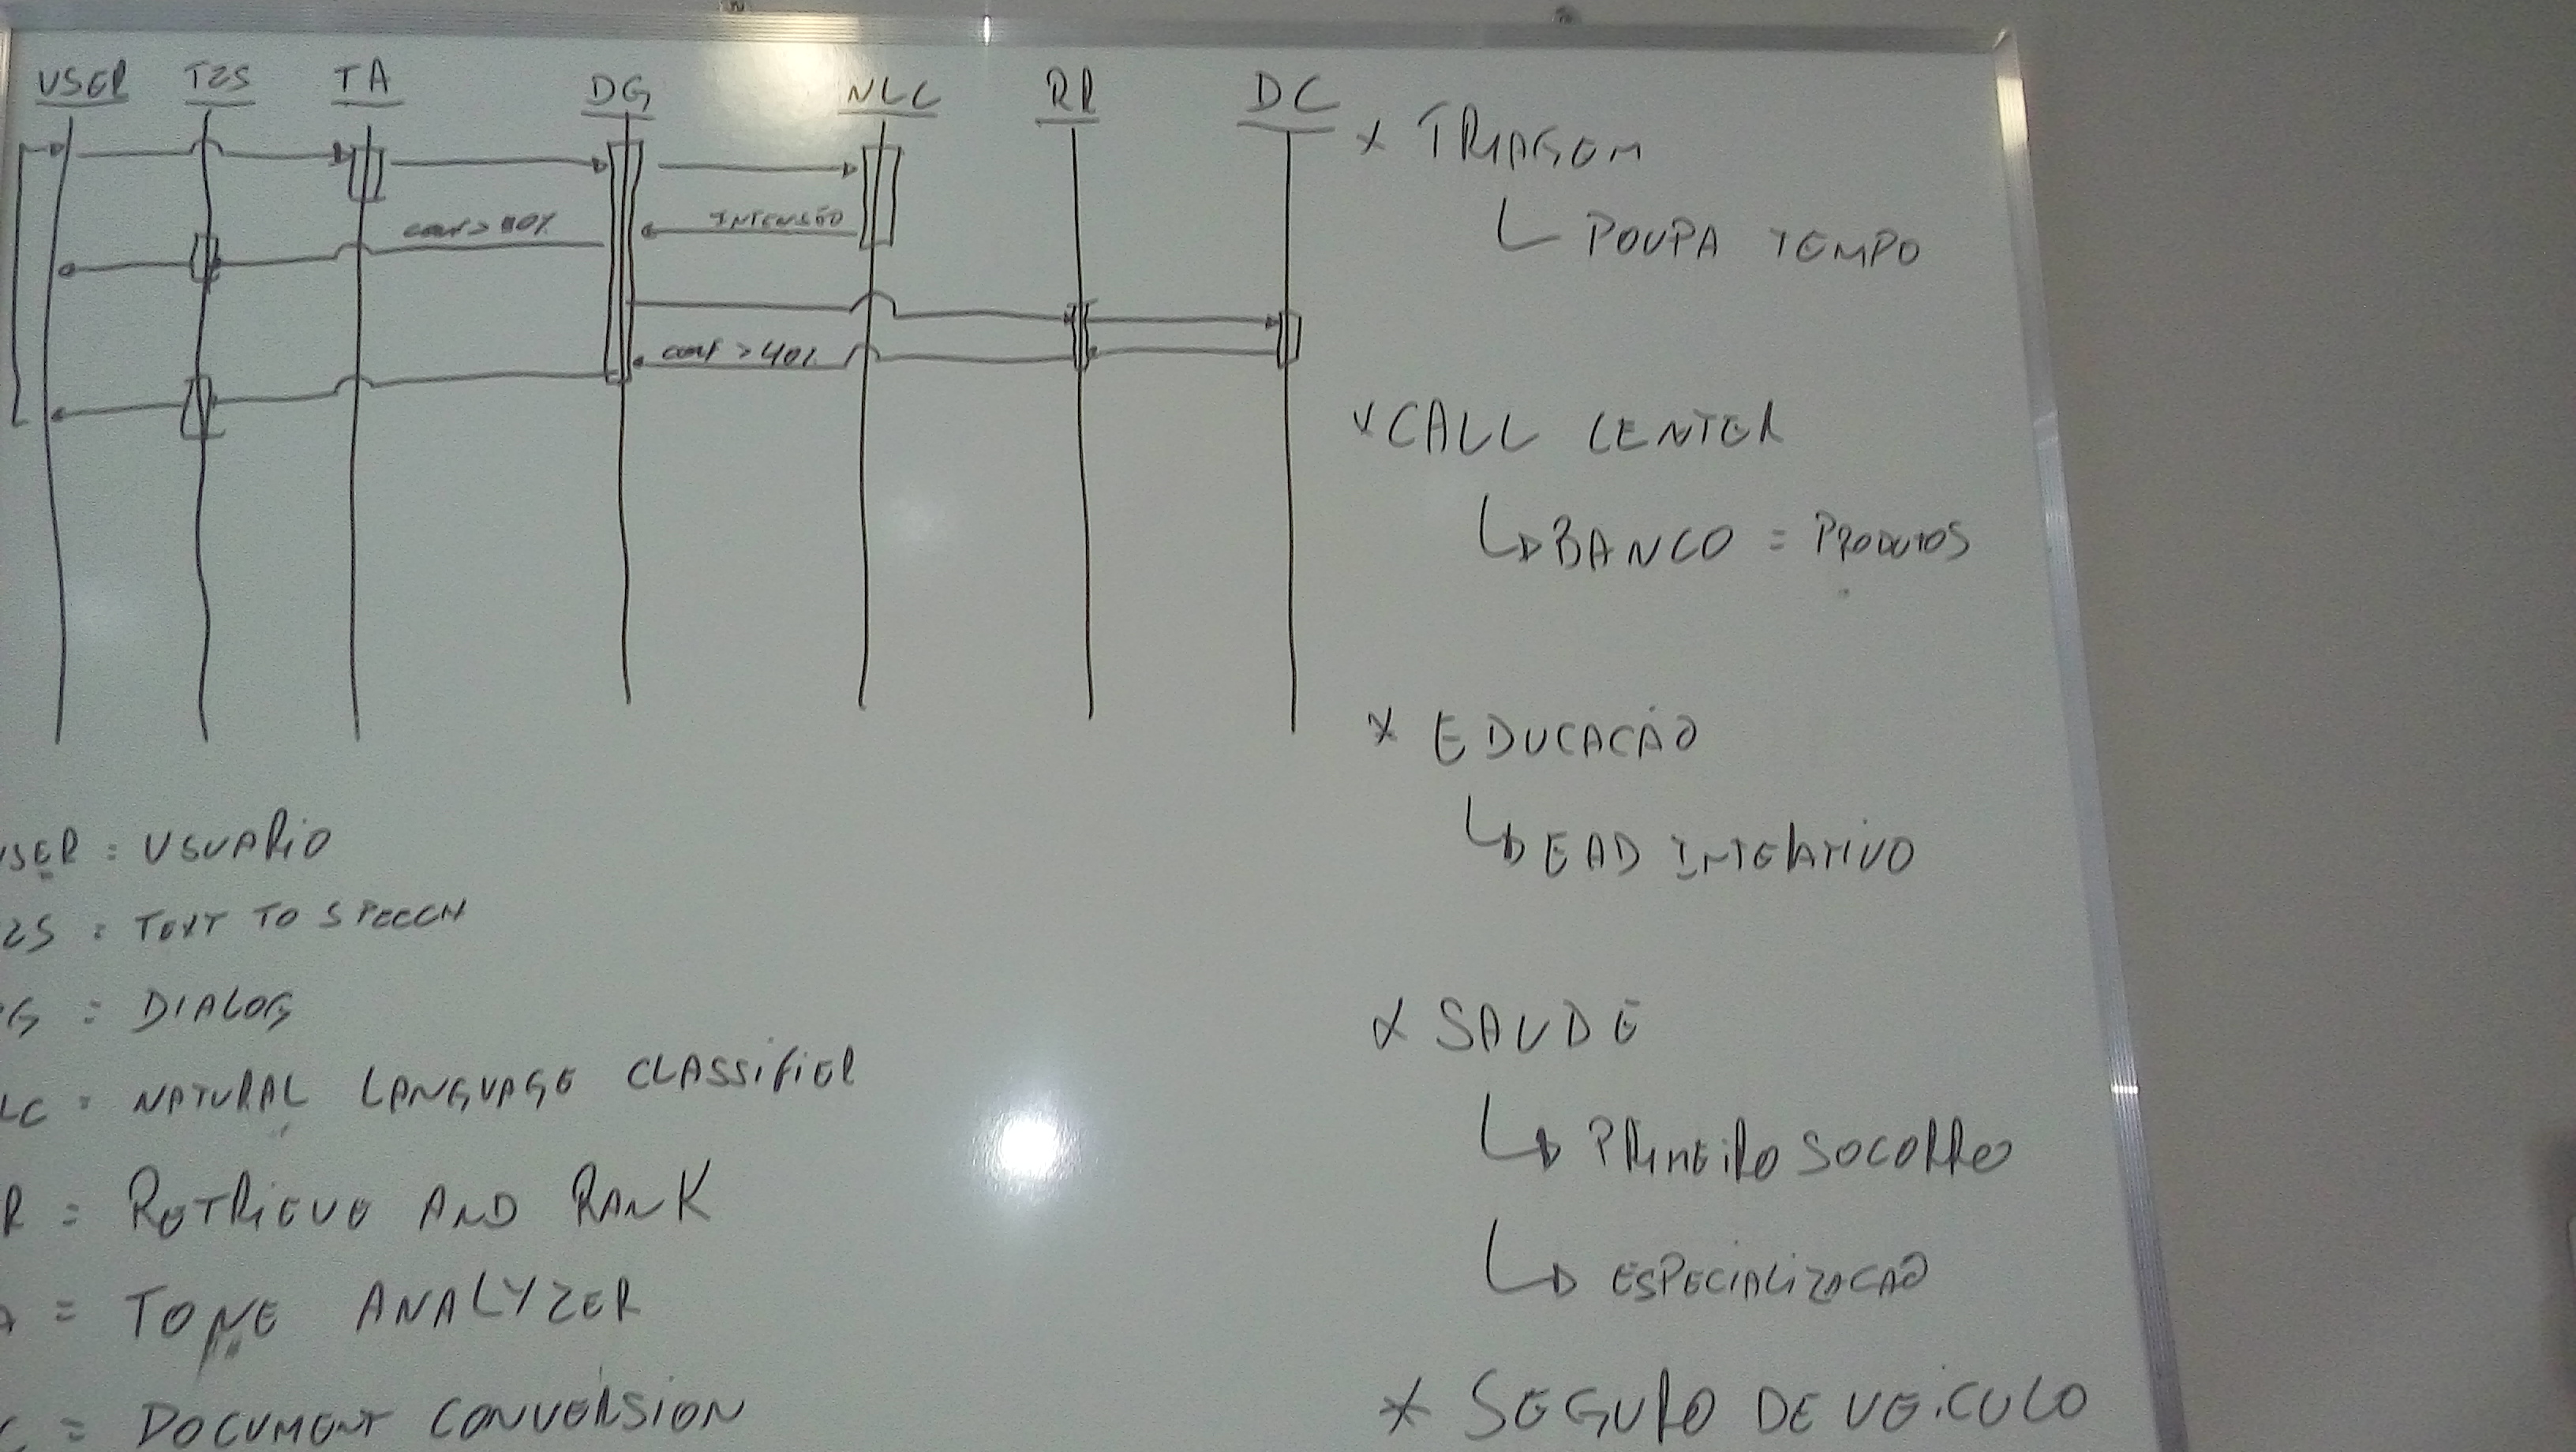 USER T2S TA DG NLC RR DC
INTENSÃO
conf > 80%
conf > 40%
USER = USUARIO
2S = TEXT TO SPEECH
G = DIALOG
LC = NATURAL LANGUAGE CLASSIFIER
R = RETRIEVE AND RANK
A = TONE ANALYZER
C = DOCUMENT CONVERSION
x TRIAGEM
POUPA TEMPO
x CALL CENTER
BANCO = PRODUTOS
x EDUCACÃO
EAD INTERATIVO
x SAUDE
PRIMEIRO SOCORRO
ESPECIALIZACAO
x SEGURO DE VEICULO